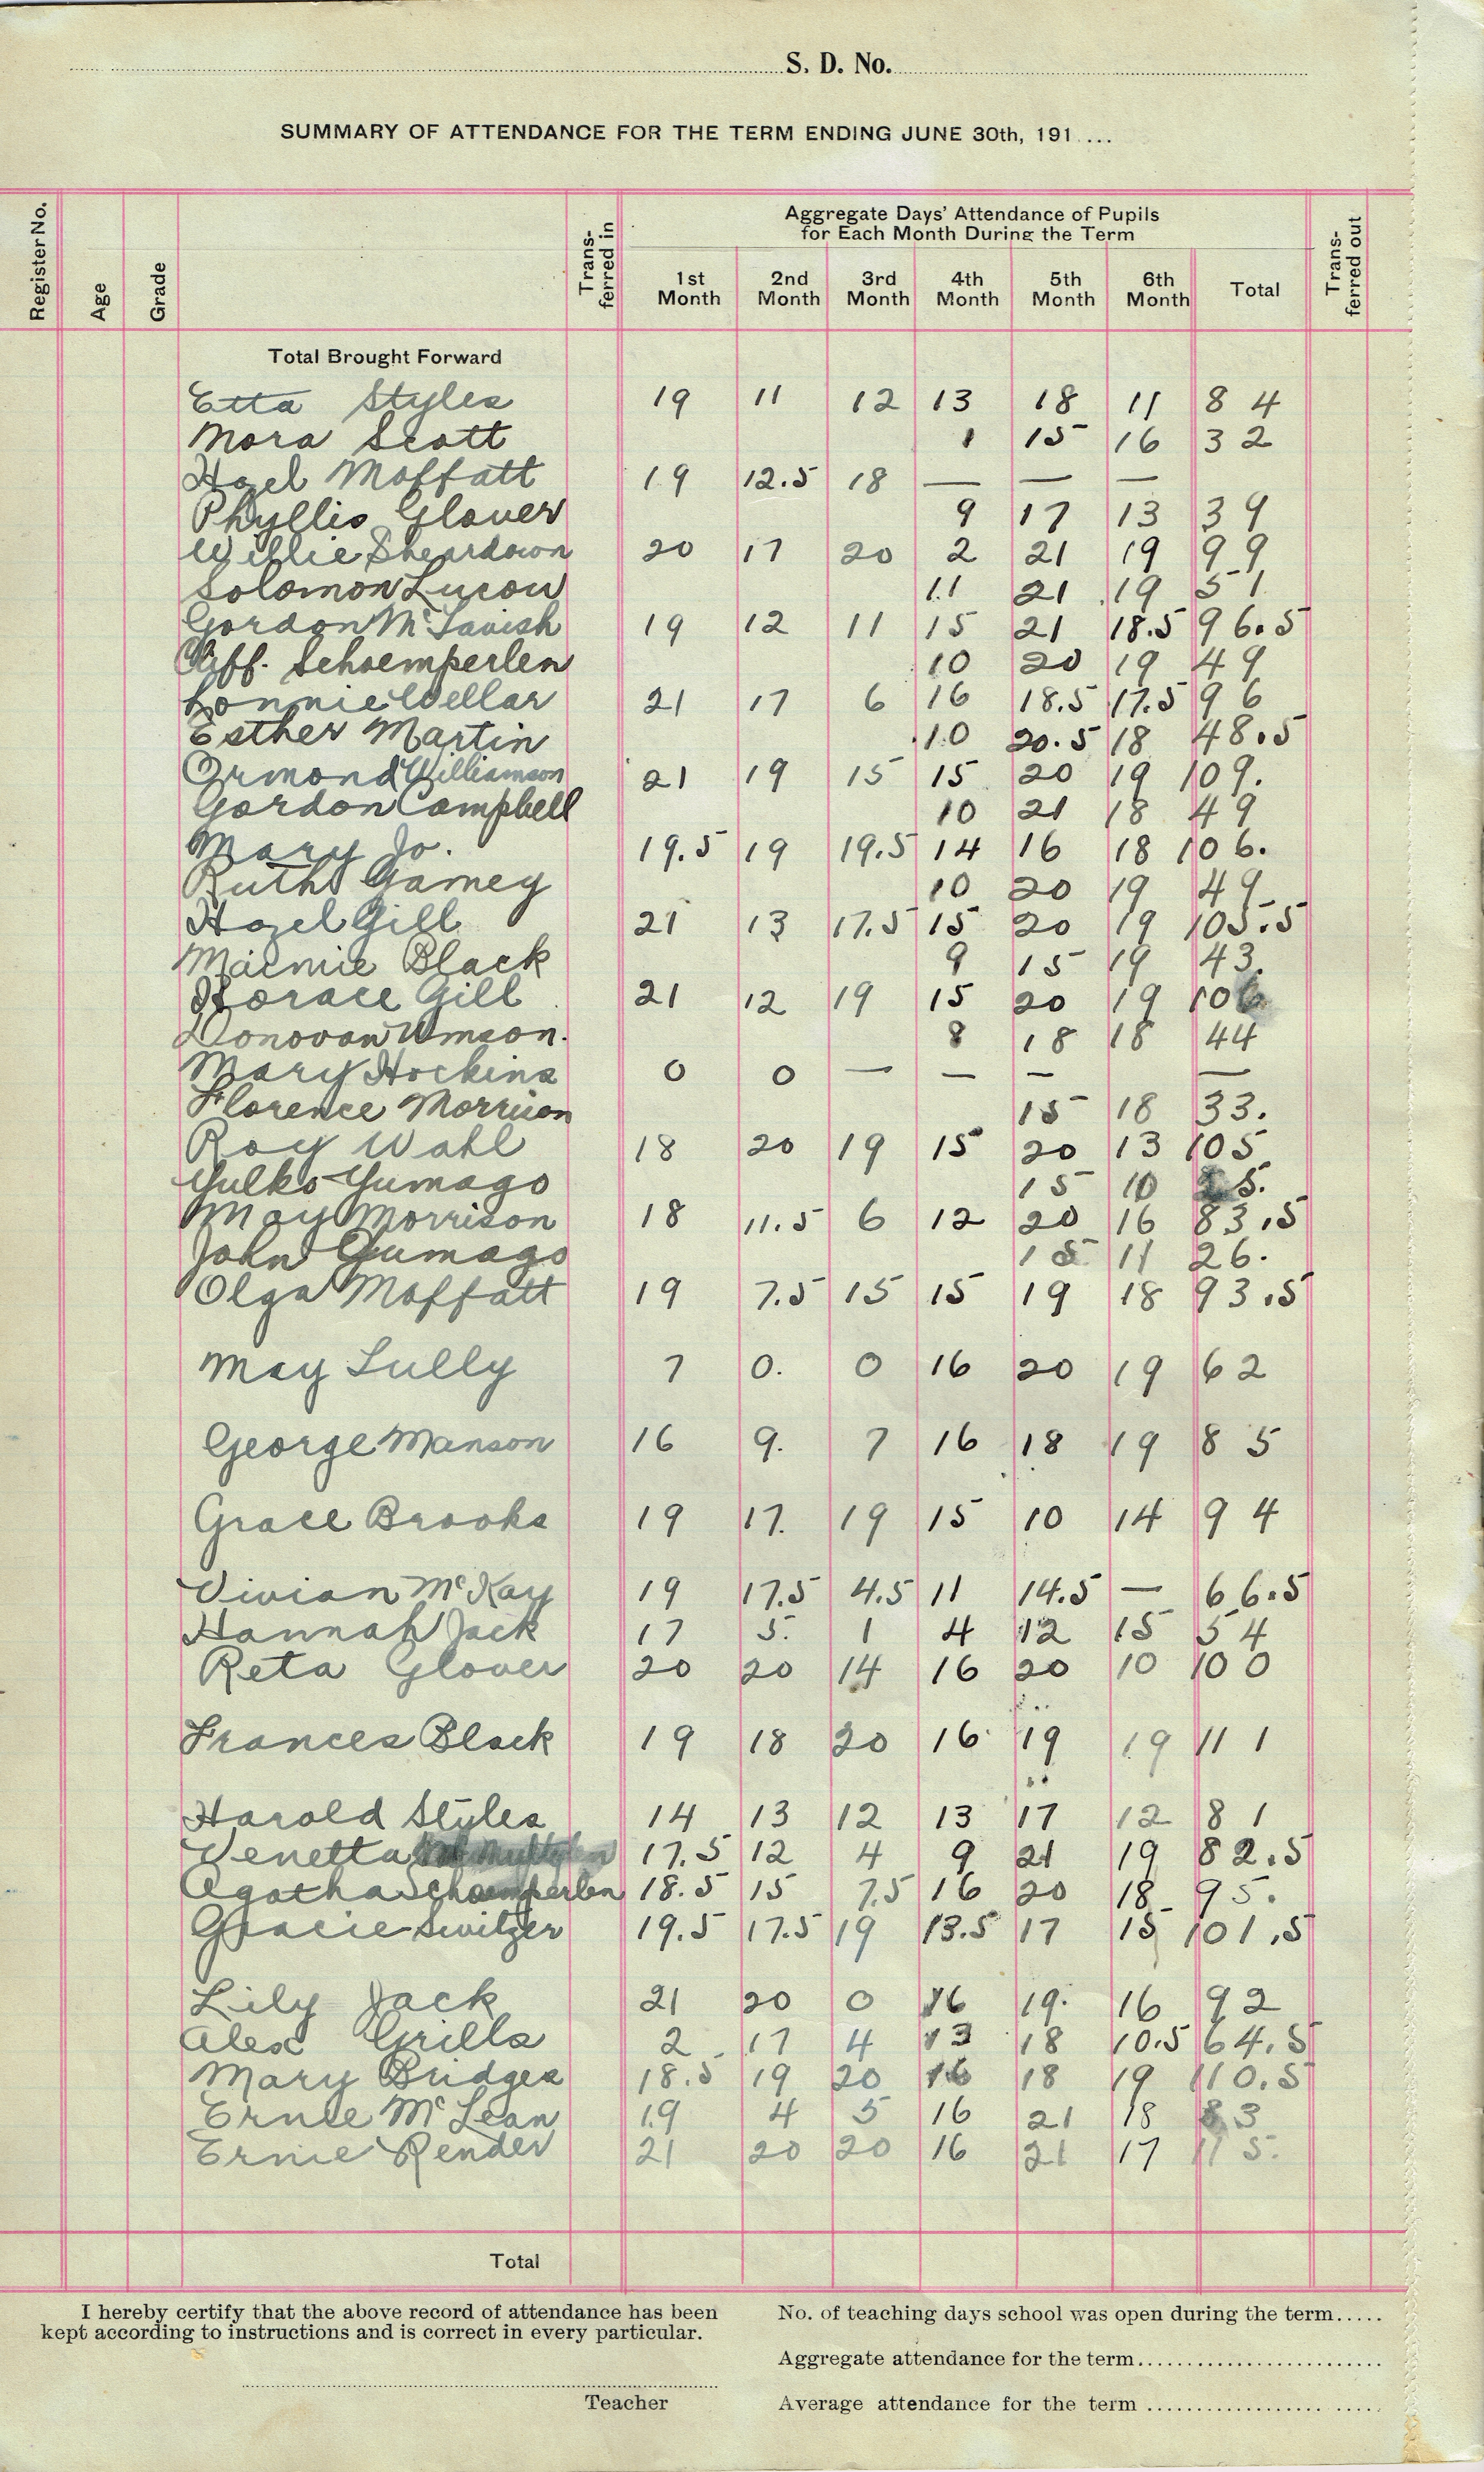 S. D. No.
SUMMARY OF ATTENDANCE FOR THE TERM ENDING JUNE 30th, 191 ...
Register No. Age Grade Trans-ferred in Aggregate Days' Attendance of Pupils for Each Month During the Term Trans-ferred out
1st Month 2nd Month 3rd Month 4th Month 5th Month 6th Month Total
Total Brought Forward
Etta Styles 19 11 12 13 18 11 84
Nora Scott 1 15 16 32
Hazel Moffatt 19 12.5 18 — — —
Phyllis Glover 9 17 13 39
Willie Sheardown 20 17 20 2 21 19 99
Solomon Lucow 11 21 19 51
Gordon McTavish 19 12 11 15 21 18.5 96.5
Cliff. Schoemperlen 10 20 19 49
Lonnie Wellar 21 17 6 16 18.5 17.5 96
Esther Martin 10 20.5 18 48.5
Ormond Williamson 21 19 15 15 20 19 109.
Gordon Campbell 10 21 18 49
Mary Jo. 19.5 19 19.5 14 16 18 106.
Ruth Garney 10 20 19 49
Hazel Gill 21 13 17.5 15 20 19 105.5
Maimie Black 9 15 19 43.
Horace Gill 21 12 19 15 20 19 106
Donovan Wmson. 8 18 18 44
Mary Hockins 0 0 — — — —
Florence Morrison 15 18 33.
Roy Wahl 18 20 19 15 20 13 105
Yulko Yumago 15 10 25.
May Morrison 18 11.5 6 12 20 16 83.5
John Yumago 15 11 26.
Olga Moffatt 19 7.5 15 15 19 18 93.5
May Lully 7 0. 0 16 20 19 62
George Manson 16 9. 7 16 18 19 85
Grace Brooks 19 17. 19 15 10 14 94
Vivian McKay 19 17.5 4.5 11 14.5 — 66.5
Hannah Jack 17 5. 1 4 12 15 54
Reta Glover 20 20 14 16 20 10 100
Frances Black 19 18 20 16 19 19 111
Harold Styles 14 13 12 13 17 12 81
Venetta 17.5 12 4 9 21 19 82.5
Agatha Schoemperlen 18.5 15 7.5 16 20 18 95.
Gracie Switzer 19.5 17.5 19 13.5 17 15 101.5
Lily Jack 21 20 0 16 19. 16 92
Alex Grills 2 17 4 13 18 10.5 64.5
Mary Bridges 18.5 19 20 16 18 19 110.5
Ernie McLean 19 4 5 16 21 18 83
Ernie Render 21 20 20 16 21 17 115.
Total
I hereby certify that the above record of attendance has been
kept according to instructions and is correct in every particular.
Teacher
No. of teaching days school was open during the term.....
Aggregate attendance for the term
Average attendance for the term